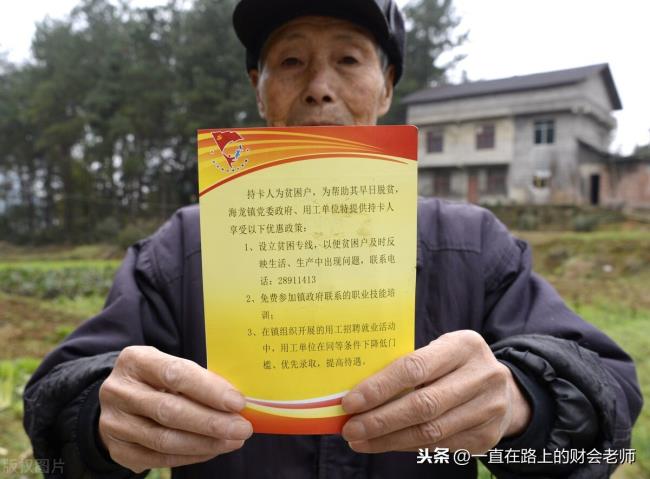 持卡人为贫困户，为帮助其早日脱贫，
海龙镇党委政府、用工单位特提供持卡人
享受以下优惠政策：
1、设立贫困专线，以便贫困户及时反
映生活、生产中出现问题，联系电
话：28911413
2、免费参加镇政府联系的职业技能培
训；
3、在镇组织开展的用工招聘就业活动
中，用工单位在同等条件下降低门
槛、优先录取，提高待遇。
版权图片
头条 @一直在路上的财会老师